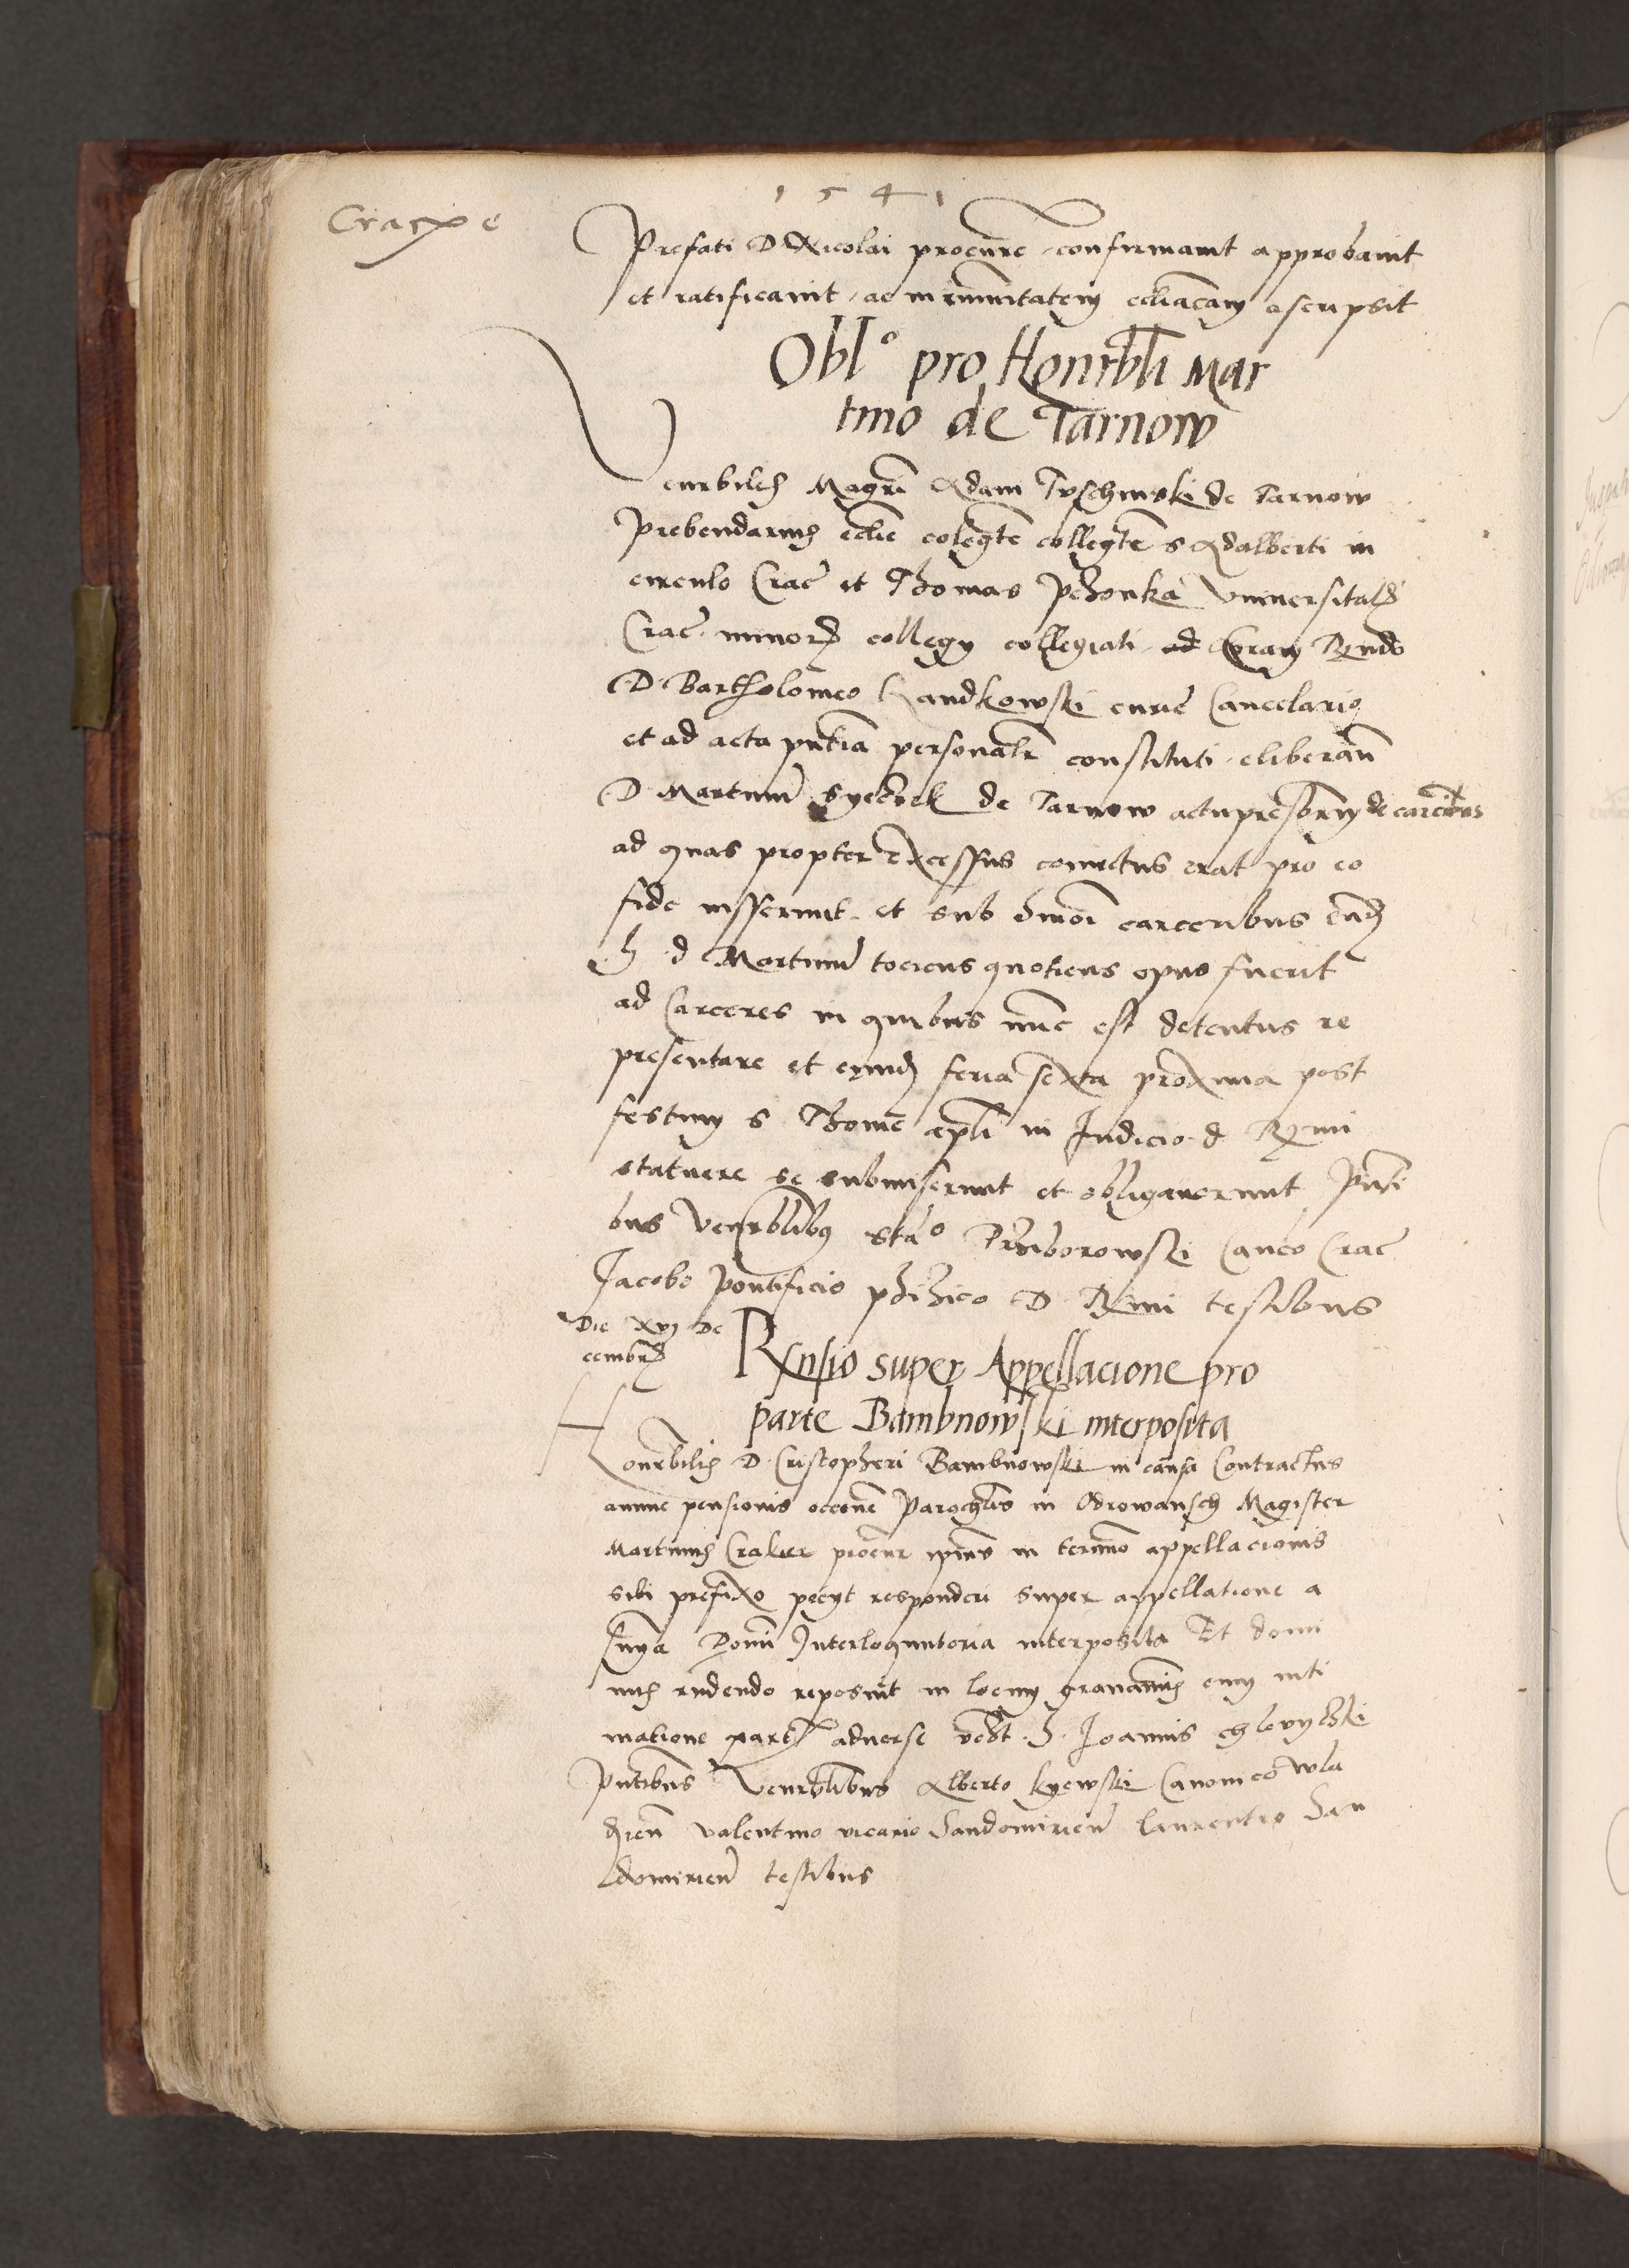 1541
Cracxoe
Prefati D Nicolai procure confirmavit approbavit
et ratificavit ac in immunitatem eccliacam ascripsit
Obl⁰ pro Honrbli Mar
tino de Tarnow
Venrbiles Magri Adam de Tarnow
prebendarius eclie colegte collegte S Adalberti in
circulo Crac et Thomas Universitatis
Crac minoris collegij collegiati ad Coram Rndo
D Bartholomeo Gandkowski curie Cancelario
et ad acta pntia personalr constituti eliberan
D Martinu de Tarnow actu presbrm de carceribus
ad quas propter excessus conuictus erat pro eo
fide iusserunt et sub hmoi carceribus eund
h d Martinu tociens quotiens opus fuerit
ad Carceres in quibus nunc est detentus re
presentare et eund feria sexta proxima post
festum S Thome apli in Judicio d Rmi
statuere se submiserunt et obligaverunt Pnti
bus Venrblibus Sta⁰ Przborowski Canco Crac
Jacobo Pontificio phizico D Rmi testibus
Die xvj De
cembris
Rxnsio super Appellacione pro
parte Bambnowski interposita
Honrbilis D Cristopheri Bambnowski in causa Contractus
annue pensionis occone Parochlis in Odrowansch Magister
Martinus Craker procur ipius in termino appellacionis
sibi prefixo pecyt responderi super appellatione a
snya Domi Interloquutoria interposita Et domi
nus rndendo reposuit in locum gravaminis cum inti
matione partis adverse h Joannis
Pntibus Venrblibus Alberto Kyewski Canonico Wla
Valentino vicario Sandomirien Laurentio San
domirien testibus